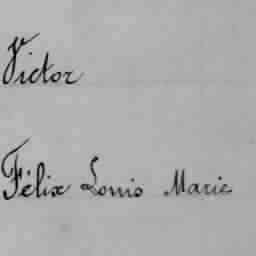 Victor
Félix Louis Marie